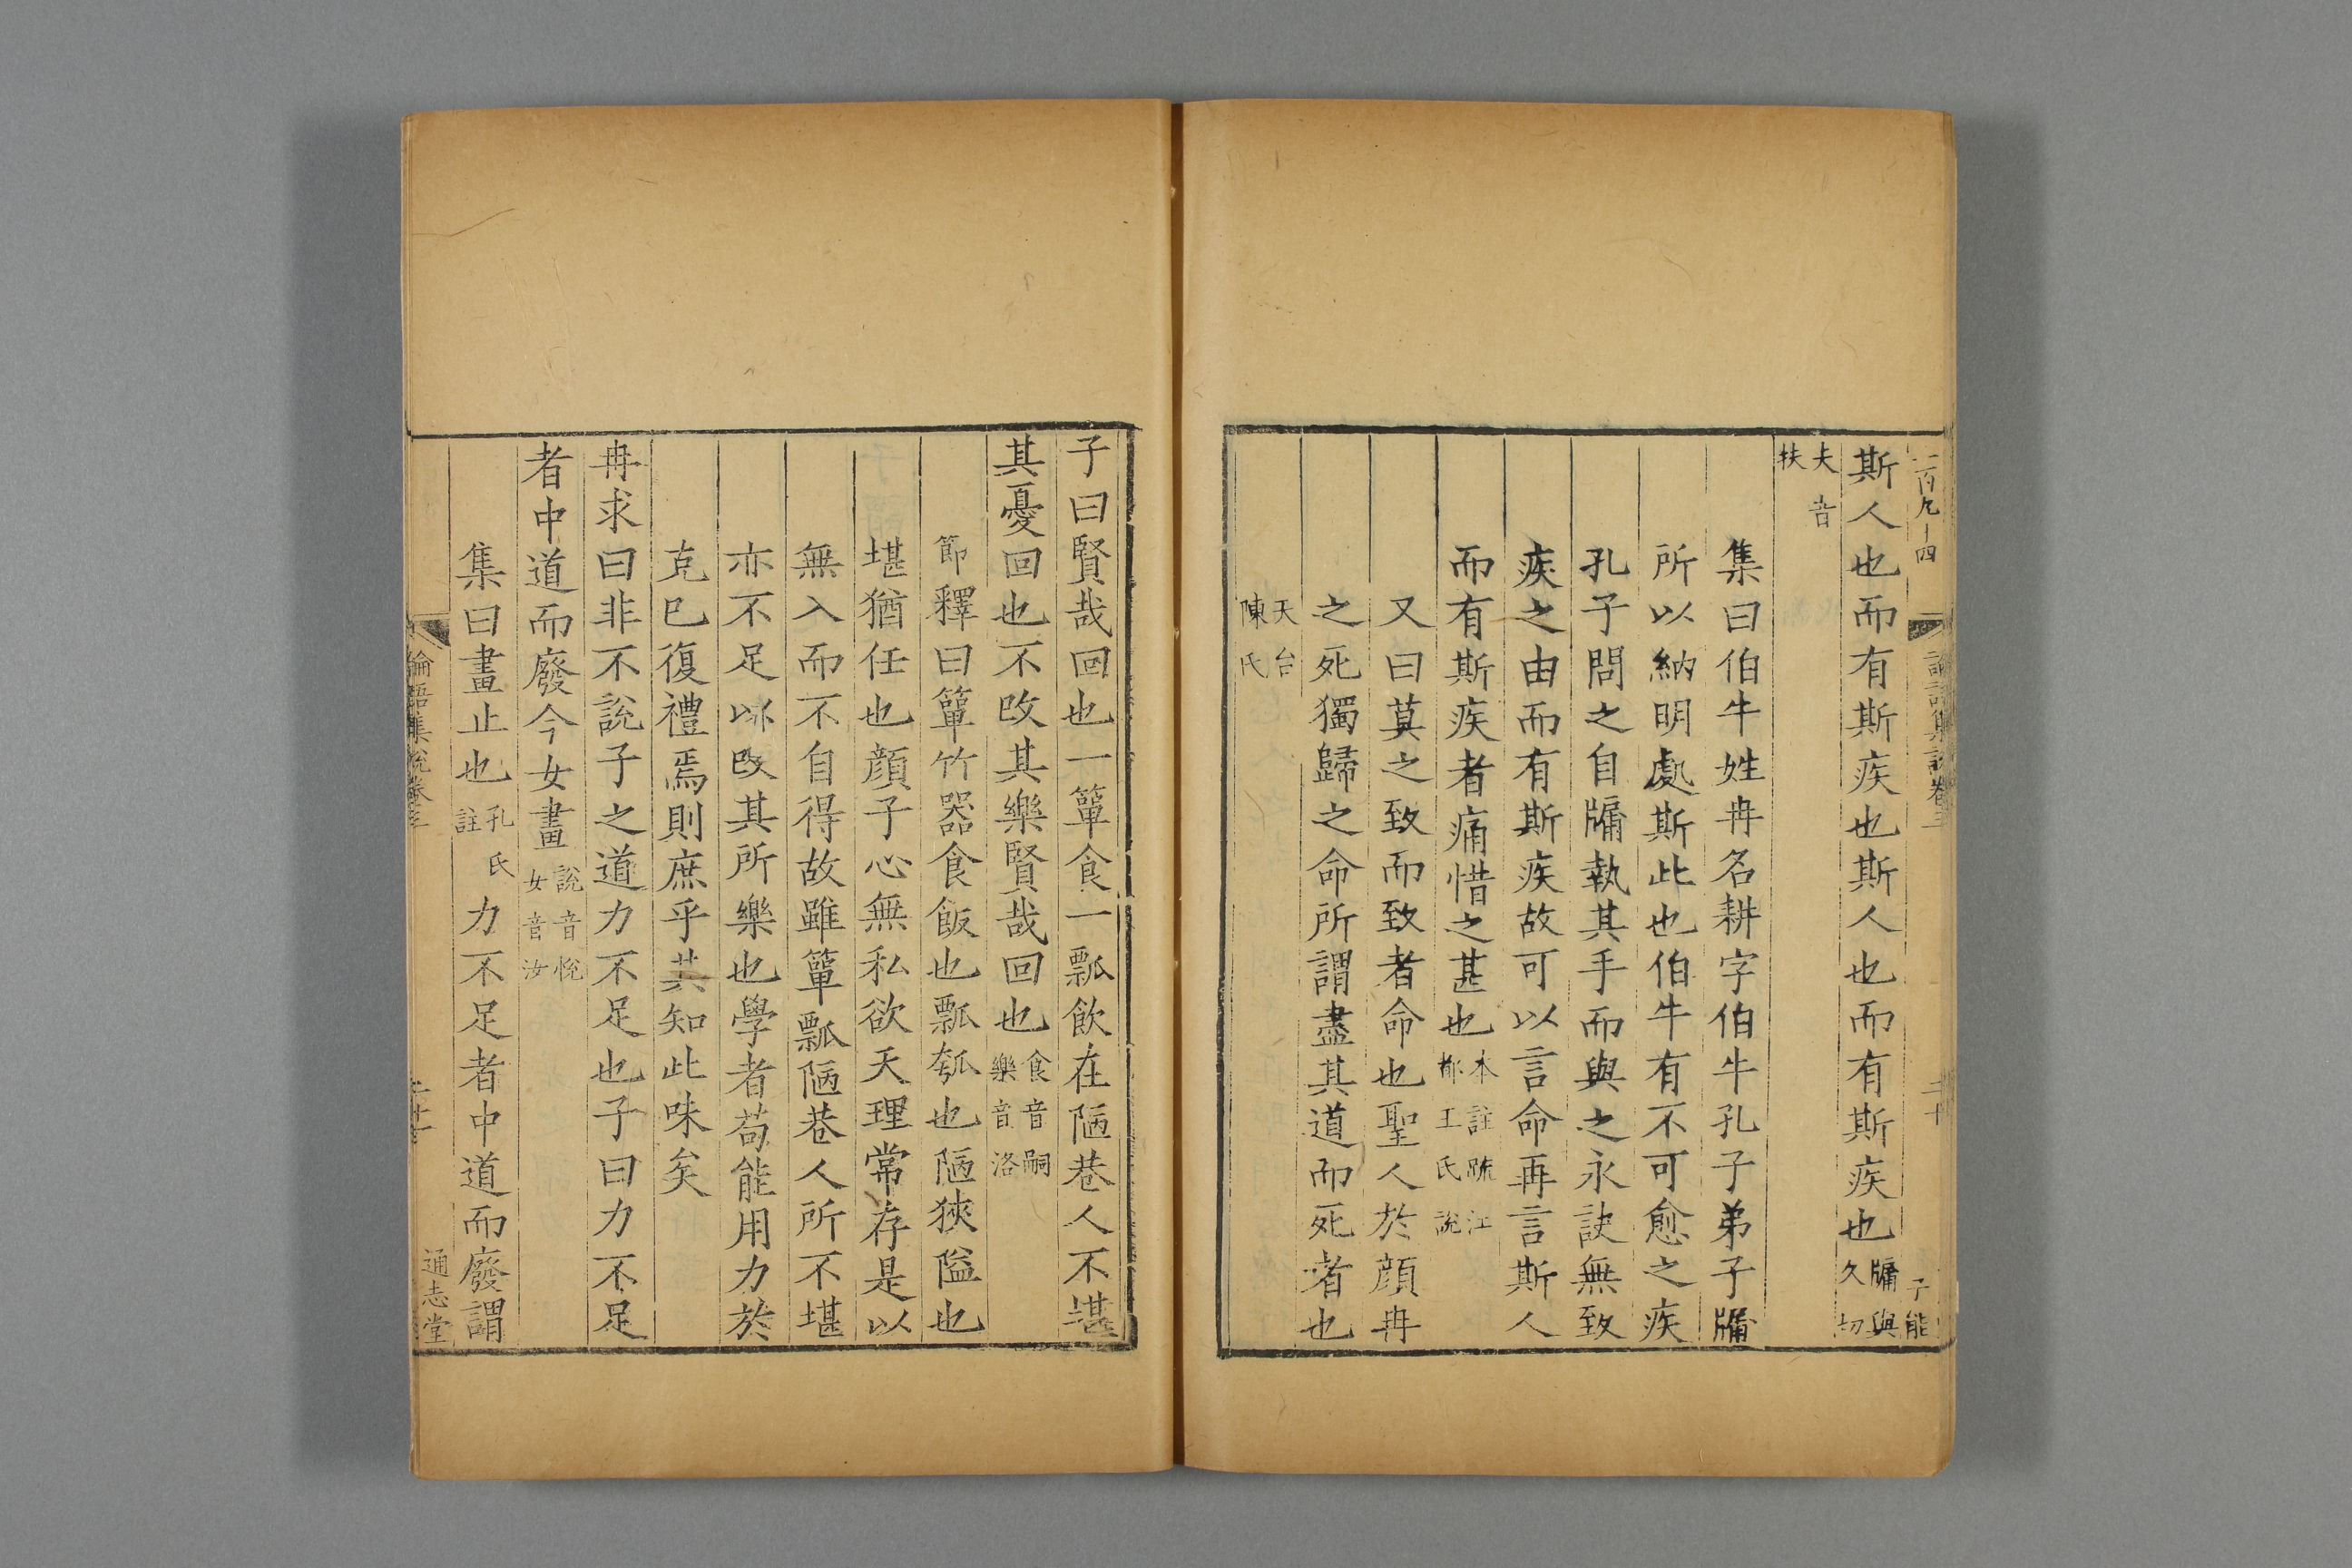 斯人也而有斯疾也斯人也而有斯疾也牖與久切
夫音扶
集曰伯牛姓冉名耕字伯牛孔子弟子牖
所以納明處斯此也伯牛有不可愈之疾
孔子問之自牖執其手而與之永訣無致
疾之由而有斯疾故可以言命再言斯人
而有斯疾者痛惜之甚也本註疏江都王氏說
又曰莫之致而致者命也聖人於顔冉
之死獨歸之命所謂盡其道而死者也
天台陳氏
子曰賢哉回也一簞食一瓢飲在陋巷人不堪
其憂回也不改其樂賢哉回也食音嗣樂音洛
節釋曰簞竹器食飯也瓢瓠也陋狹隘也
堪猶任也顔子心無私欲天理常存是以
無入而不自得故雖簞瓢陋巷人所不堪
亦不足以改其所樂也學者苟能用力於
克已復禮焉則庶乎其知此味矣
冉求曰非不說子之道力不足也子曰力不足
者中道而廢今女畫說音悅女音汝
集曰畫止也孔氏註力不足者中道而廢謂
論語集說卷三
通志堂